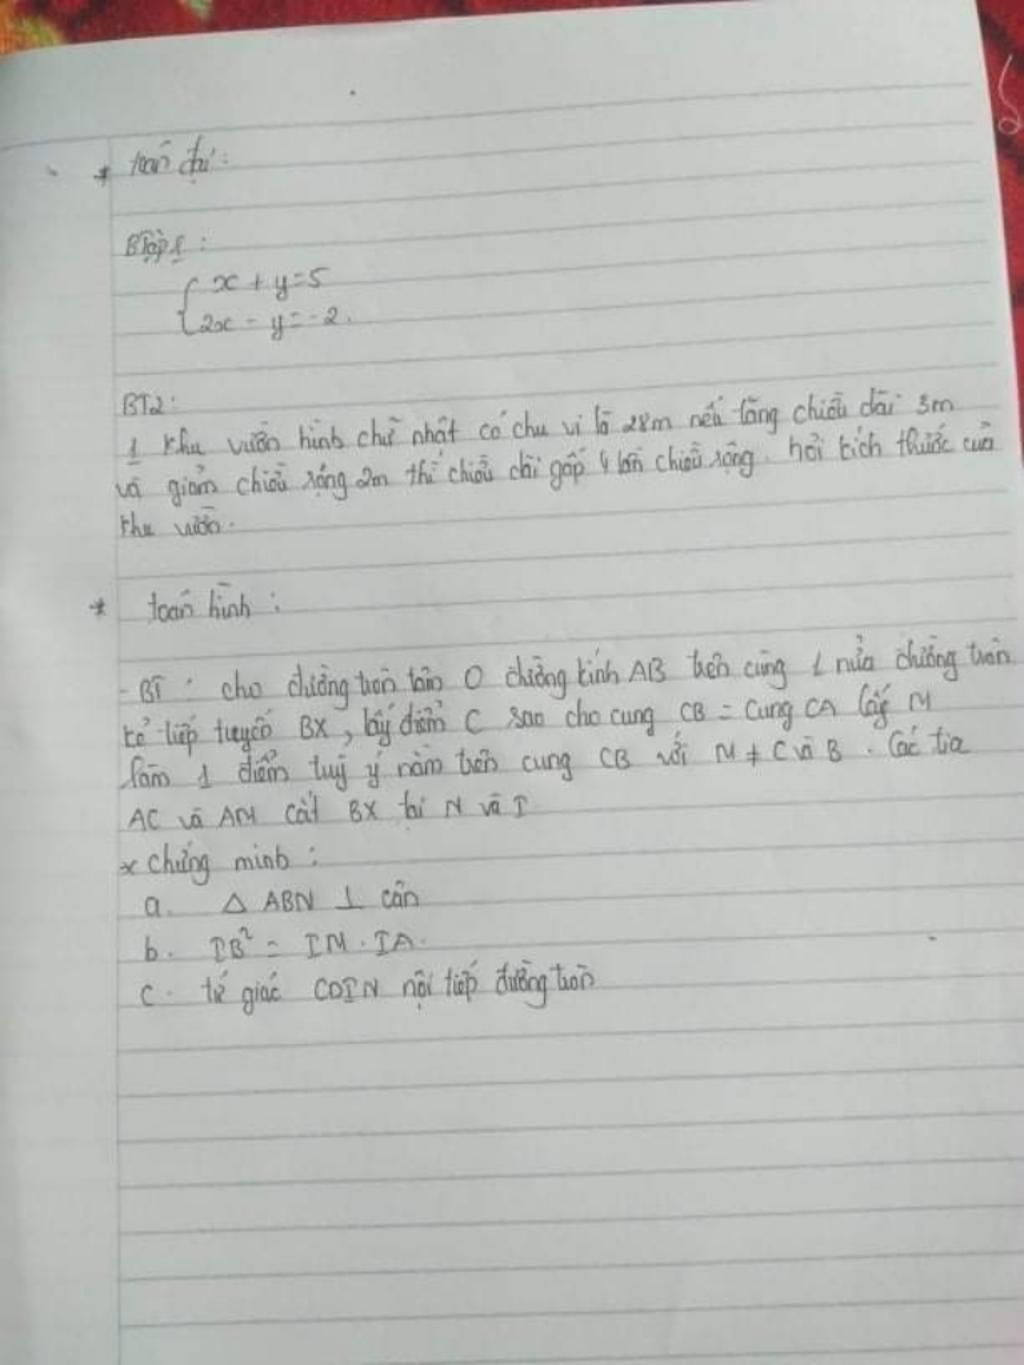 * toán đại:
BTập 1:
x + y = 5
2x - y = -2.
BT2:
1 khu vườn hình chữ nhật có chu vi là 28m nếu tăng chiều dài 3m
và giảm chiều rộng 2m thì chiều dài gấp 4 lần chiều rộng. hỏi kích thước của
khu vườn.
* toán hình:
- BT: cho đường tròn tâm O đường kính AB trên cùng 1 nửa đường tròn
kẻ tiếp tuyến BX, lấy điểm C sao cho cung CB = Cung CA lấy M
làm 1 điểm tuỳ ý nằm trên cung CB với M ≠ C và B. Các tia
AC và AM cắt BX tại N và I
x chứng minh:
a. Δ ABN ⊥ cân
b. IB² = IM.IA.
c. tứ giác CDIN nội tiếp đường tròn